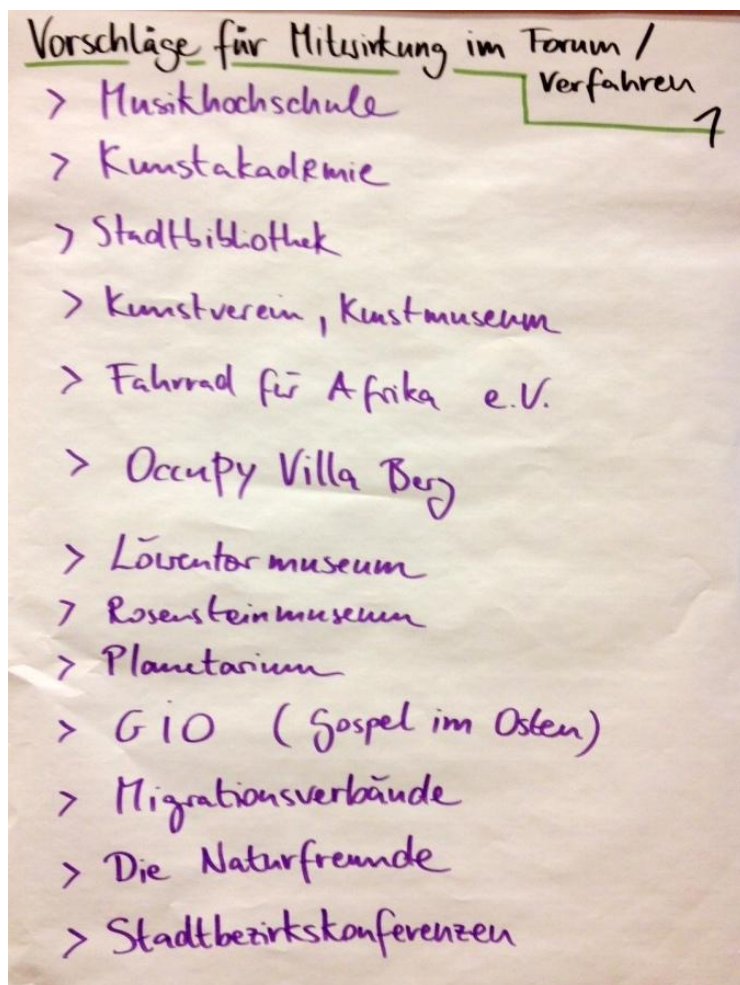 Vorschläge für Mitwirkung im Forum /
Verfahren
1
> Musikhochschule
> Kunstakademie
> Stadtbibliothek
> Kunstverein, Kunstmuseum
> Fahrrad für Afrika e.V.
> Occupy Villa Berg
> Löwentormuseum
> Rosensteinmuseum
> Planetarium
> GIO (Gospel im Osten)
> Migrationsverbände
> Die Naturfreunde
> Stadtbezirkskonferenzen